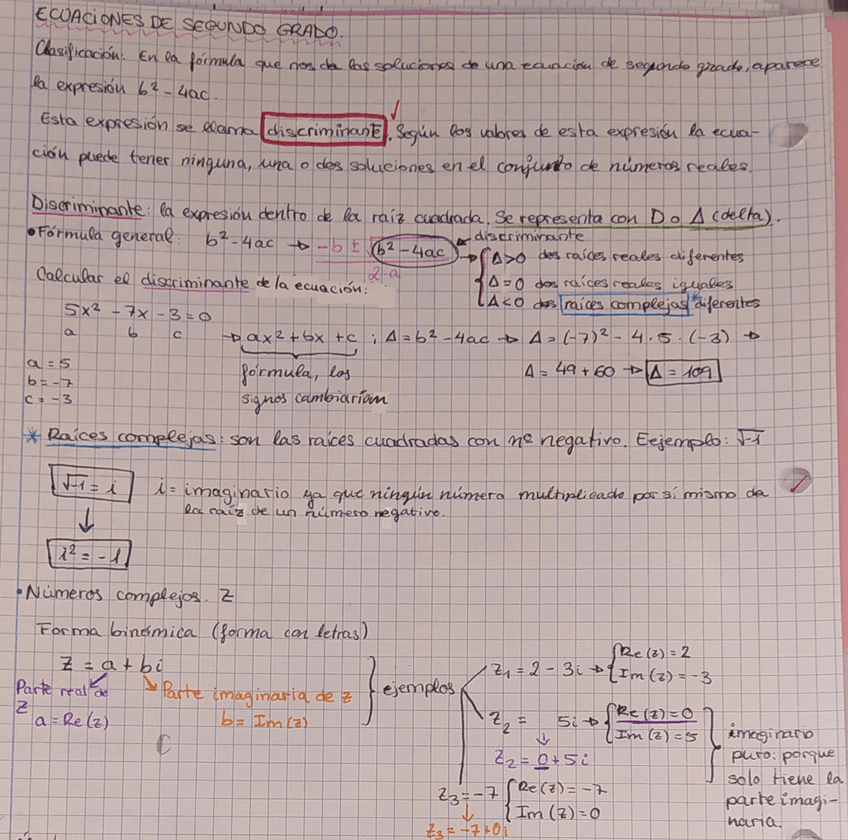 ECUACIONES DE SEGUNDO GRADO.
Clasificación: En la fórmula que nos da las soluciones de una ecuación de segundo grado, aparece
la expresión b² - 4ac.
Esta expresión se llama discriminante. Según los valores de esta expresión la ecua-
ción puede tener ninguna, una o dos soluciones en el conjunto de números reales.
Discriminante: la expresión dentro de la raíz cuadrada. Se representa con D o Δ (delta).
• Fórmula general: b² - 4ac → -b ± √b² - 4ac / 2·a ← discriminante
→ { Δ>0 dos raíces reales diferentes
Δ=0 dos raíces reales iguales
Δ<0 dos raíces complejas* diferentes
Calcular el discriminante de la ecuación:
5x² - 7x - 3 = 0
a b c
→ ax² + bx + c ; Δ = b² - 4ac → Δ = (-7)² - 4 · 5 · (-3) →
fórmula, los
signos cambiarían
Δ = 49 + 60 → Δ = 109
a = 5
b = -7
c = -3
* Raíces complejas: son las raíces cuadradas con nº negativo. Eejemplo: √-1
√-1 = i
i = imaginario ya que ningún número multiplicado por sí mismo da
la raíz de un número negativo.
↓
i² = -1
• Números complejos. Z
Forma binómica (forma con letras)
Z = a + bi
Parte real de
Z
a = Re(z)
Parte imaginaria de z
b = Im(z)
} ejemplos
Z₁ = 2 - 3i → { Re(z) = 2
Im(z) = -3
Z₂ = 5i → { Re(z) = 0
Im(z) = 5
↓
Z₂ = 0 + 5i
} imaginario
puro: porque
solo tiene la
parte imagi-
naria.
Z₃ = -7 { Re(z) = -7
Im(z) = 0
↓
Z₃ = -7 + 0i